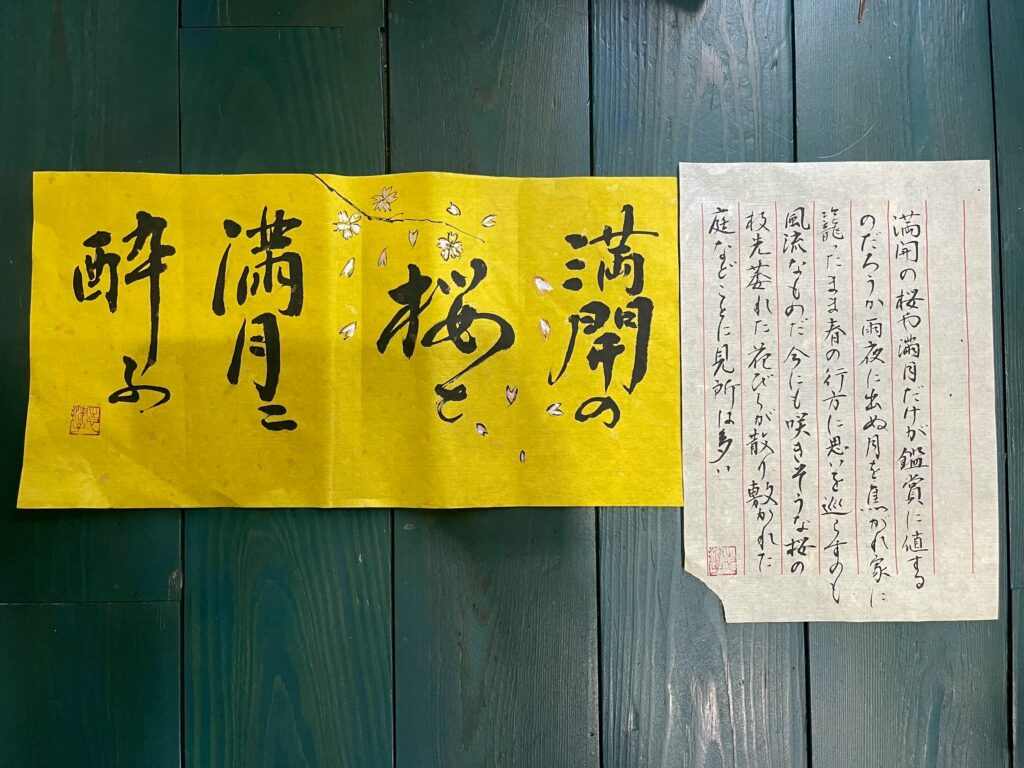 満開の桜や満月だけが鑑賞に値する
のだろうか雨夜に出ぬ月を焦がれ家に
籠ったまま春の行方に思いを巡らすのも
風流なものだ今にも咲きそうな桜の
枝先萎れた花びらが散り敷かれた
庭などことに見所は多い
満開の
桜と
満月ニ
酔ふ